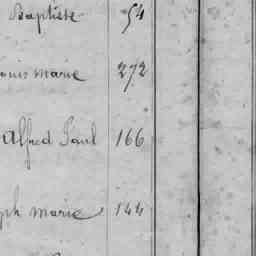 Baptiste 54
ouis marie 272
Alfred Paul 166
ph marie 144